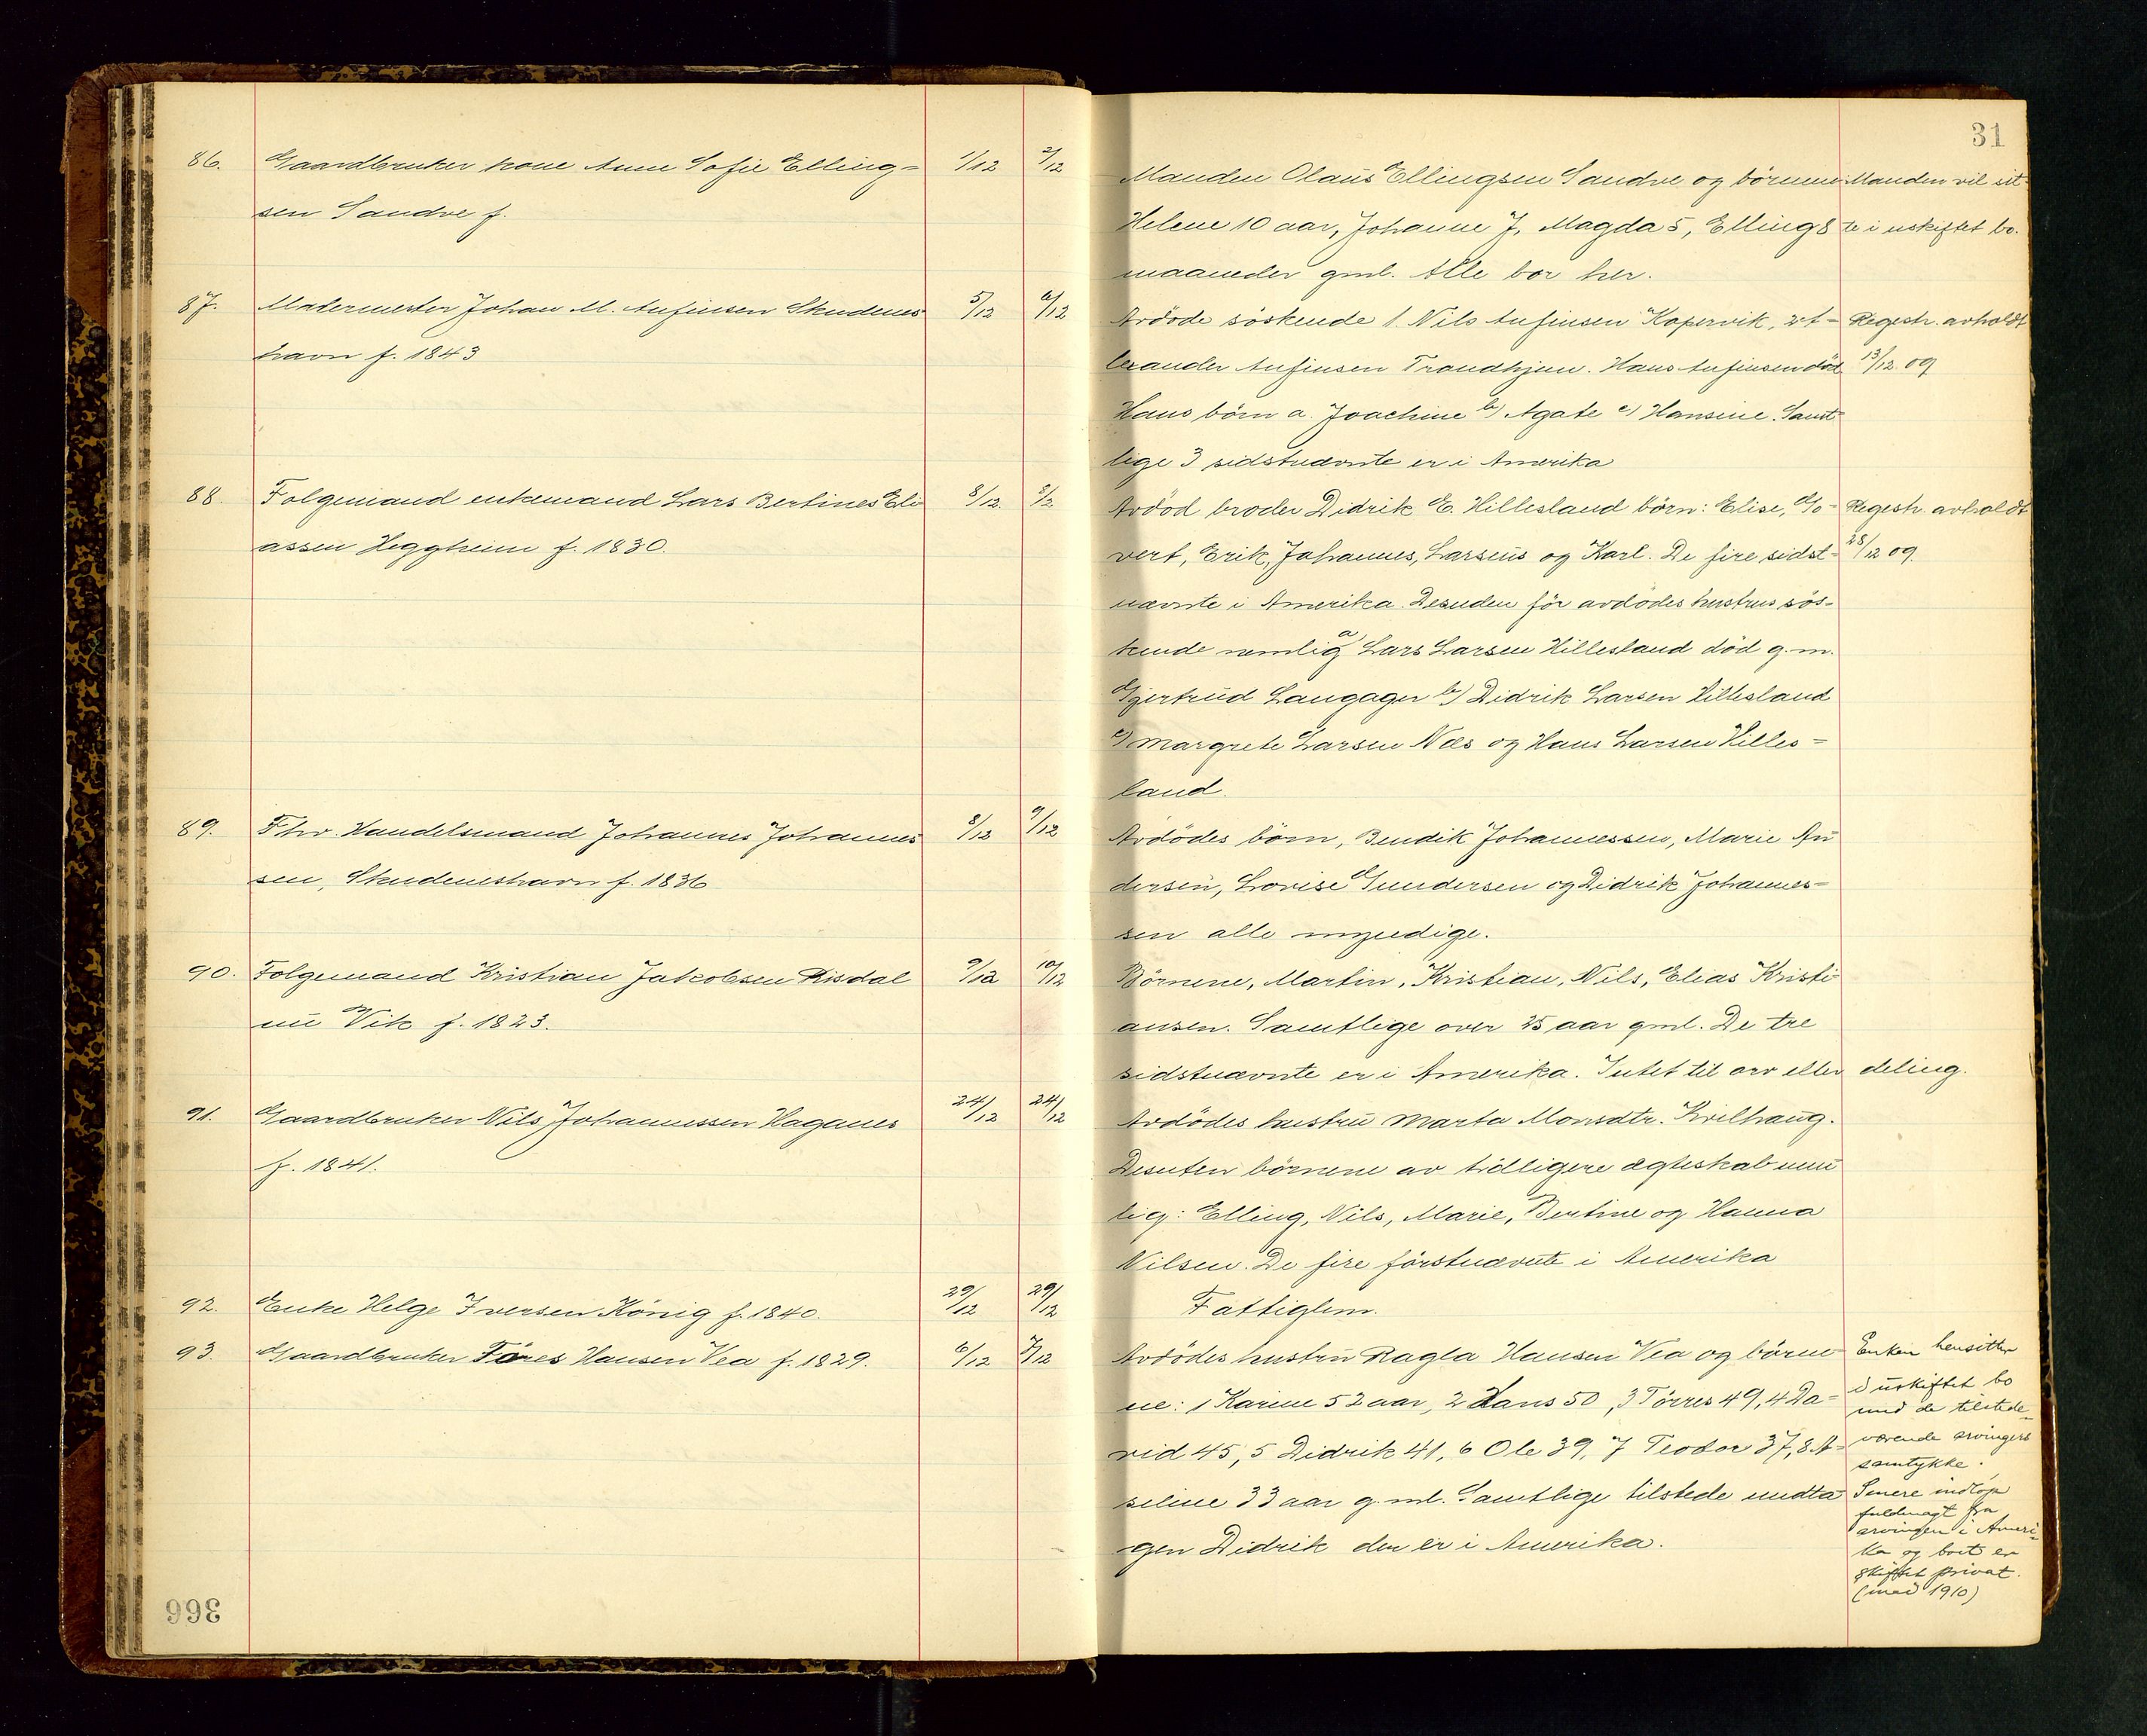 31
86. Gaardbruker kone Anne Sofie Elling= 1/12 2/12
sen Sandve f.
Manden Olaus Ellingsen Sandve og börnene Manden vil sit
Helene 10 aar, Johanne 7, Magda 5, Elling 8 te i uskiftet bo.
maaneder gml. Alle bor her.
87. Malermester Johan M. Anfinsen Skudenes 5/12 6/12
havn f. 1843
Avdöde söskende 1. Nils Anfinsen Kopervik, 2 A= Regestr. avholdt
lexander Anfinsen Trondhjem. Hans Anfinsen död 13/12 09
Hans börn a. Joachine b) Agate c) Hansine. Samt=
lige 3 sidstnævnte er i Amerika
88. Folgemand enkemand Lars Bertines Eli 8/12 8/12
assen Heggheim f. 1830.
Avdöd broder Didrik E. Hillesland börn: Elise, Go= Regestr. avholdt
vert, Erik, Johannes, Larsens og Karl. De fire sidst= 28/12 09.
nævnte i Amerika. Desuden för avdödes hustrus sös=
kende nemlig a Lars Larsen Hillesland död g.m.
Gjertrud Langager b) Didrik Larsen Hillesland
c) Margrete Larsen Næs og Hans Larsen Hilles=
land.
89. Fhv. Handelsmand Johannes Johannes 8/12 9/12
sen, Skudeneshavn f. 1836
Avdödes börn, Bendik Johannessen, Marie An
dersen, Lovise Gundersen og Didrik Johannes=
sen alle myndige.
90. Folgemand Kristian Jakobsen Risdal 9/12 10/12
nu Vik f. 1823.
Börnene, Martin, Kristian, Nils, Elias Kristi
ansen. Samtlige over 25 aar gml. De tre
sidstnævnte er i Amerika. Intet til arv eller deling.
91. Gaardbruker Nils Johannessen Haganes 24/12 24/12
f. 1841.
Avdödes hustru Marta Monsdtr. Kvilhaug.
Desuten börnene av tidligere ægteskab nem
lig: Elling, Nils, Marie, Bertine og Hanna
Nilsen. De fire förstnævnte i Amerika
92. Enke Helge Iversen König f. 1840. 29/12 29/12
Fattiglem.
93. Gaardbruker Töres Hansen Vea f. 1829. 6/12 7/12
Avdödes hustru Ragla Hansen Vea og börne
ne: 1 Karine 52 aar, 2 Hans 50, 3 Törres 49, 4 Da=
vid 45, 5 Didrik 41, 6 Ole 39, 7 Teodor 37, 8 A=
seline 33 aar g.ml. Samtlige tilstede undta
gen Didrik der er i Amerika.
Enken hensitter
i uskiftet bo
med de tilstede=
værende arvingers
samtykke.
Senere indlöp
fuldmagt fra
arvingen i Ameri=
ka og boet er
skiftet privat.
(mai 1910)
366